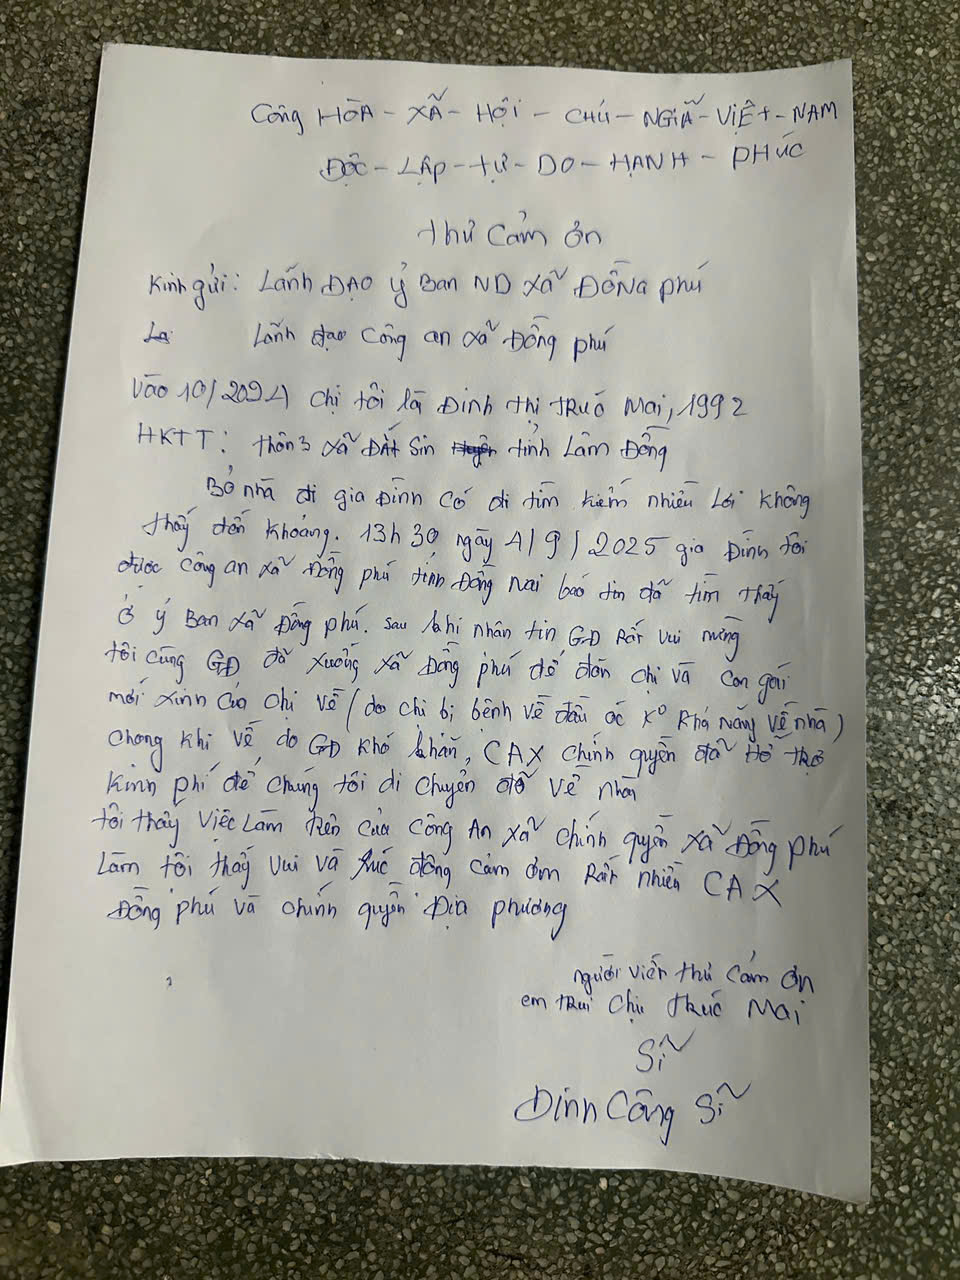 Công HÒA - XÃ - HỘI - CHÚ - NGIÃ - VIỆt - NAM
ĐỘC - LẬP - tỰ - DO - HẠNH - PHÚC
thư Cảm ơn
Kinh gửi: Lãnh ĐẠO ỷ Ban ND xã ĐỒNG phú
Lãnh đạo Công an xã Đồng phú
Vào 10/2024 chị tôi là Đinh thị trúc Mai, 1992
HKTT: thôn 3 xã ĐẮt Sin tỉnh Lâm Đồng
Bỏ nhà đi gia Đình có đi tìm kiếm nhiều Lơi không
thấy đến khoảng. 13h 30 ngày 4/9/2025 gia Đình tôi
được công an xã Đồng phú tỉnh Đồng Nai báo tin đã tìm thấy
ở ỷ Ban xã Đồng phú. sau khi nhân tin GĐ Rất vui mừng
tôi cùng GĐ đã xuống xã Đồng phú để đón chị và con gái
mới xinh của chị về (do chị bị bệnh về đầu óc K° Khả năng về nhà)
chong khi về do GĐ khó khăn, CAX chính quyền đã Hổ trợ
Kinh phí để chúng tôi di chuyển đỡ về nhà
tôi thấy việc Làm trên của công An xã chính quyền xã Đồng phú
Làm tôi thấy vui và xúc động cảm ơm Rất nhiều CAX
Đồng phú và chính quyền Địa phương
người viết thư cảm ơn
em trai Chị trúc Mai
Sĩ
Đinh Công Sĩ